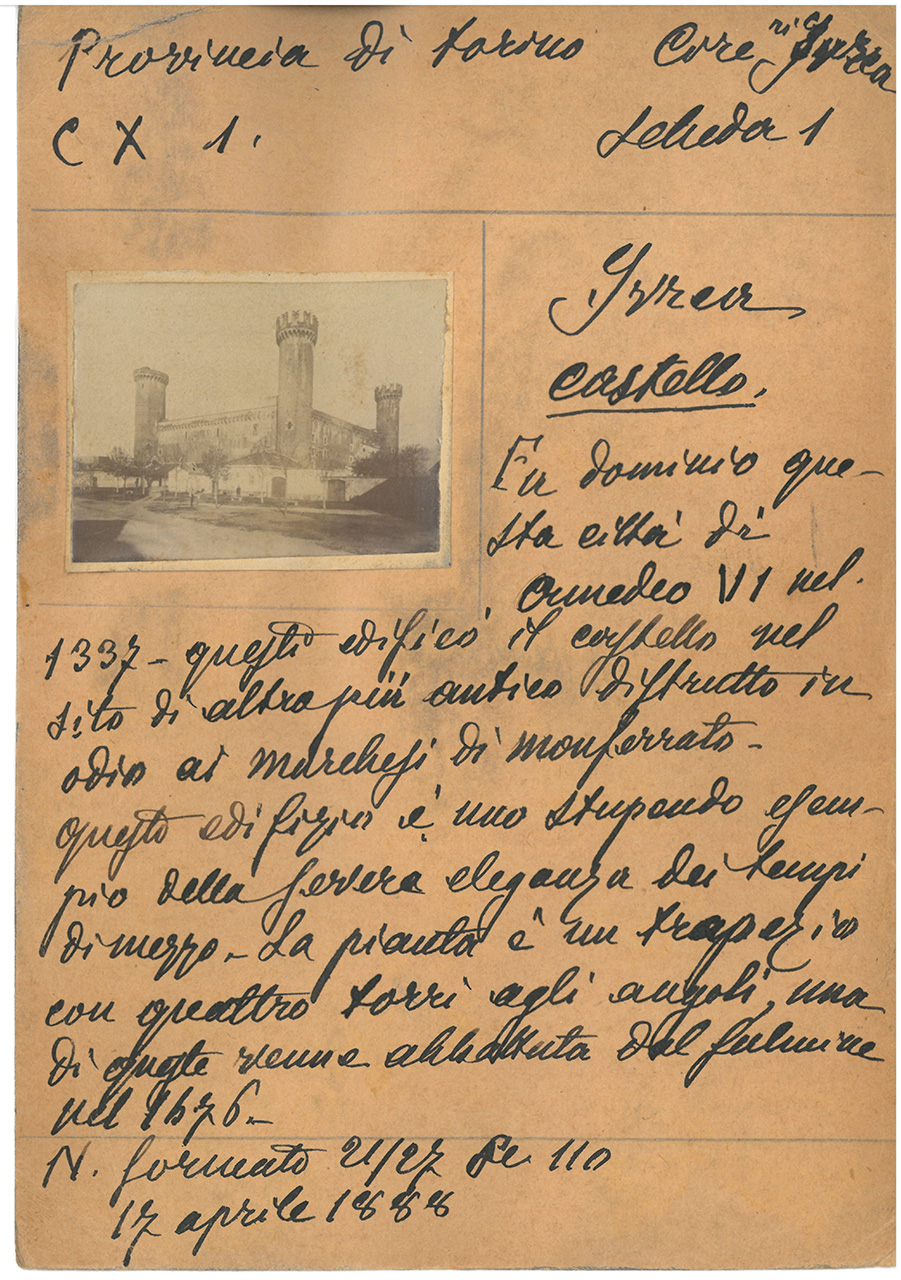 Provincia di Torino Circ.ri Ivrea
C X 1. Scheda 1
Ivrea
Castello.
In dominio que-
sta città di
Amedeo VI nel
1337 - questo edificò il castello nel
sito di altro più antico distrutto in
odio ai marchesi di Monferrato -
questo edifizio è uno stupendo esem-
pio della severa eleganza dei tempi
di mezzo. La pianta è un trapezio
con quattro torri agli angoli, una
di queste venne abbattuta dal fulmine
nel 1676.-
N. formato 21/27 110
17 aprile 1888